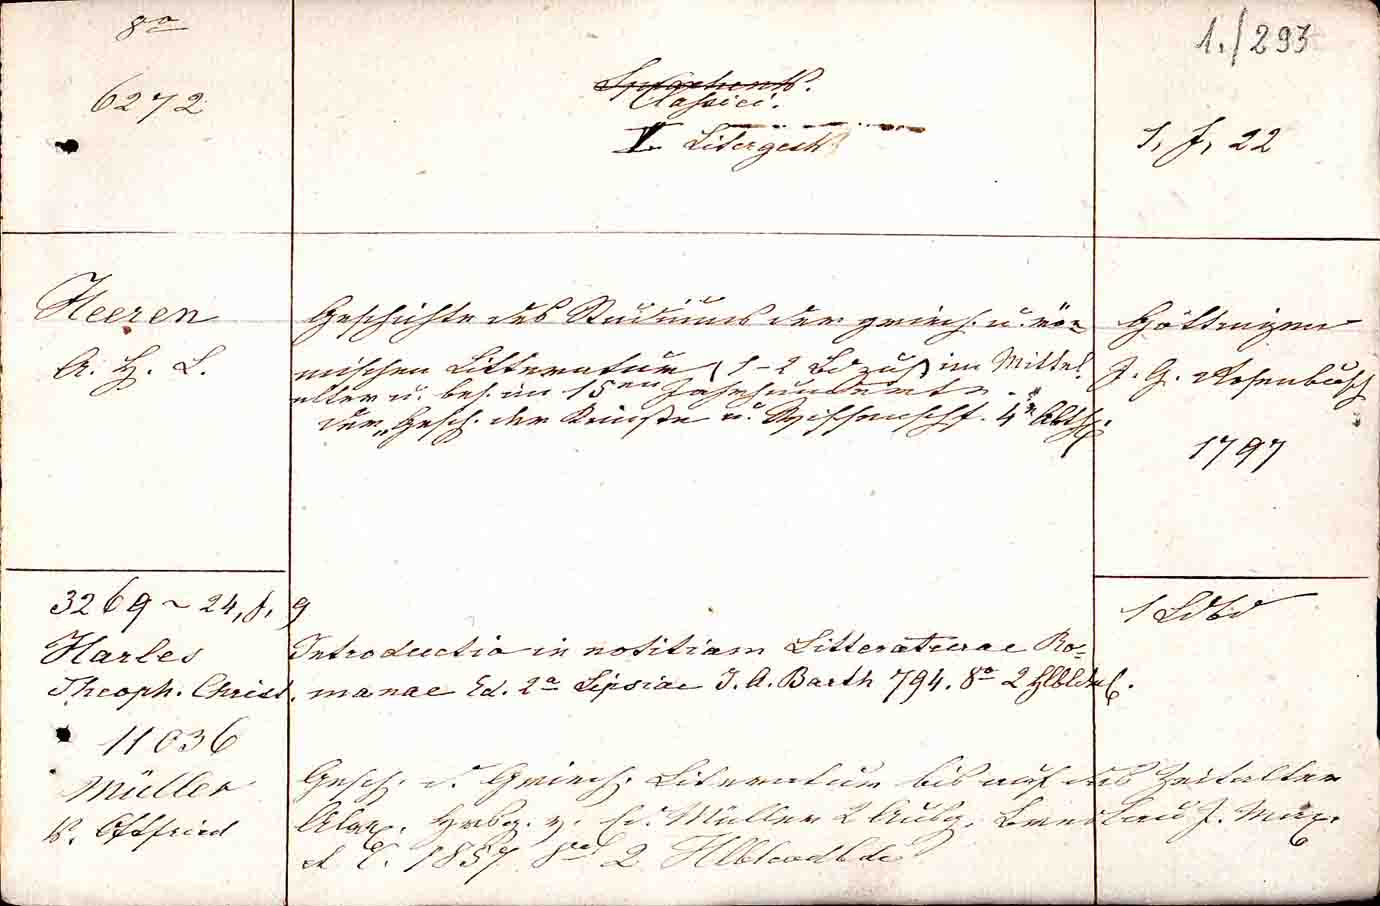 8°
6272
Classici.
V. Litergesch
1./293
I, f, 22
Heeren
A. H. L.
Geschichte des Studiums der griech. u. rö=
mischen Litteratur (1-2 Bd zus) im Mittel
alter u. bes. im 15en Jahrhundert.
der „Gesch. der Künste u. Wissenschft. 4e Abth.
Göttingen
J. G. Rosenbusch
1797
1 Ldbd
3269 ~ 24, f, 9
Harles
Theoph. Christ.
Introductio in notitiam Litteraturae Ro=
manae Ed. 2a Lipsiae I. A. Barth 794. 8° 2 Hlbldr
11036
Müller
K. Ottfried
Gesch. d. Griech. Literatur bis auf das Zeitalter
Alex. Hrsg. v. Ed. Müller 2 Ausg. Breslau J. Max.
et C. 1857 8° 2 Hlbleadbde